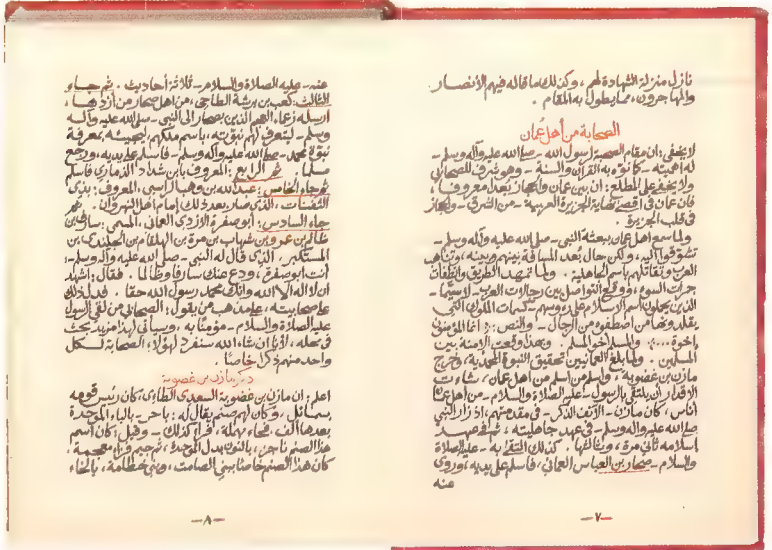 نازل منزلة الشهادة لهم، وكذلك ما قاله فيهم الأنصار
والمهاجرون، مما يطول به المقام .
الصحابة من أهل عُمان
لا يخفى: ان مقام الصحبة لرسول الله - صلى الله عليه وآله وسلم -
له أهميته - كما نوّه به القرآن والسنة - وهو شرف للصحابي
ولا يخفى على المطلع: ان بين عمان والحجاز بُعد معروف،
فان عمان في اقصى نهاية الجزيرة العربية - من الشرق - والحجاز
في قلب الجزيرة .
ولما سمع اهل عمان ببعثة النبي - صلى الله عليه وآله وسلم -
تشوقوا اليه، ولكن حال بُعد المسافة بينهم وبينه، وتناهب
العرب وتقاتلهم باسم الجاهلية . ولما تمهد الطريق وانطفأت
جمرات السوء، ووقع التواصل بين رجالات العرب - لا سيما -
الذين يحملون اسم الإسلام على رؤوسهم - كسمات الملوك التي
يقلدونها من اصطفوه من الرجال - والنص: { انما المؤمنون
اخوة ...} والمسلم اخو المسلم . وبهذا وقعت الأمنة بين
المسلمين . ولما بلغ العمانيين تحقيق النبوة المحمدية، وخرج
مازن بن غضوبة، واسلم من اسلم من اهل عمان، شاءت
الاقدار ان يلتقي بالرسول - عليه الصلاة والسلام - من اهل عمان
أناس، كان مازن - الآنف الذكر - في مقدمتهم، اذ زار النبي
صلى الله عليه وآله وسلم - في عهد جاهليته، ثم في عهد
اسلامه ثاني مرة، وثالثها . كذلك التقى به - عليه الصلاة
والسلام - صحار بن العباس العماني، فاسلم على يديه، وروى
عنه
-٧-
عنه - عليه الصلاة والسلام - ثلاثة أحاديث . ثم جاء
الثالث: كعب بن برشة الطاحي، من اهل صحار من أزدها،
ارسله زعماء العجم الذين بصحار إلى النبي - صلى الله عليه وآله
وسلم - ليتعرف لهم نبوّته، باسم ملكهم ليجيئه بمعرفة
نبوّة محمد - صلى الله عليه وآله وسلم - فاسلم على يديه، ورجع
مسلما . ثم الرابع: المعروف بابن شداد الذماري فاسلم
ثم جاء الخامس: عبد الله بن وهب الراسبي، المعروف: بذي
الثفنات، الذي صار بعد ذلك إمام أهل النهروان . ثم
جاء السادس: أبو صفرة الأزدي العماني، المسمى: سارق بن
ظالم بن عمرو بن شهاب بن مرة بن الهلقام بن الجلندى بن
المستكبر، الذي قال له النبي - صلى الله عليه وآله وسلم -:
أنت أبو صفرة، ودع عنك سارقا وظالما . فقال: اشهد
ان لا اله الا الله وانك محمد رسول الله حقا . فدل ذلك
على صحابيته، على مذهب من يقول: الصحابي من لقي الرسول
عليه الصلاة والسلام - مؤمنًا به، وسيأتي لهذا مزيد بحث
في محله، لأنا ان شاء الله سنفرد لهؤلاء الصحابة لكل
واحد منهم ذكرا خاصًا .
ذكر مازن بن غضوبة
اعلم: ان مازن بن غضوبة السعدي الطائي، كان رئيس قومه
بسمائل، وكان لهم صنم يقال له: باحر - بالباء الموحدة
بعدها الف، فحاء مهملة، فراء كذلك - وقيل: كان اسم
هذا الصنم ناجز، بالنون بدل الموحدة، ثم جيم فزاء معجمة .
كان هذا الصنم خاصًا ببني الصامت، وبني خطامة، بالخاء
-٨-